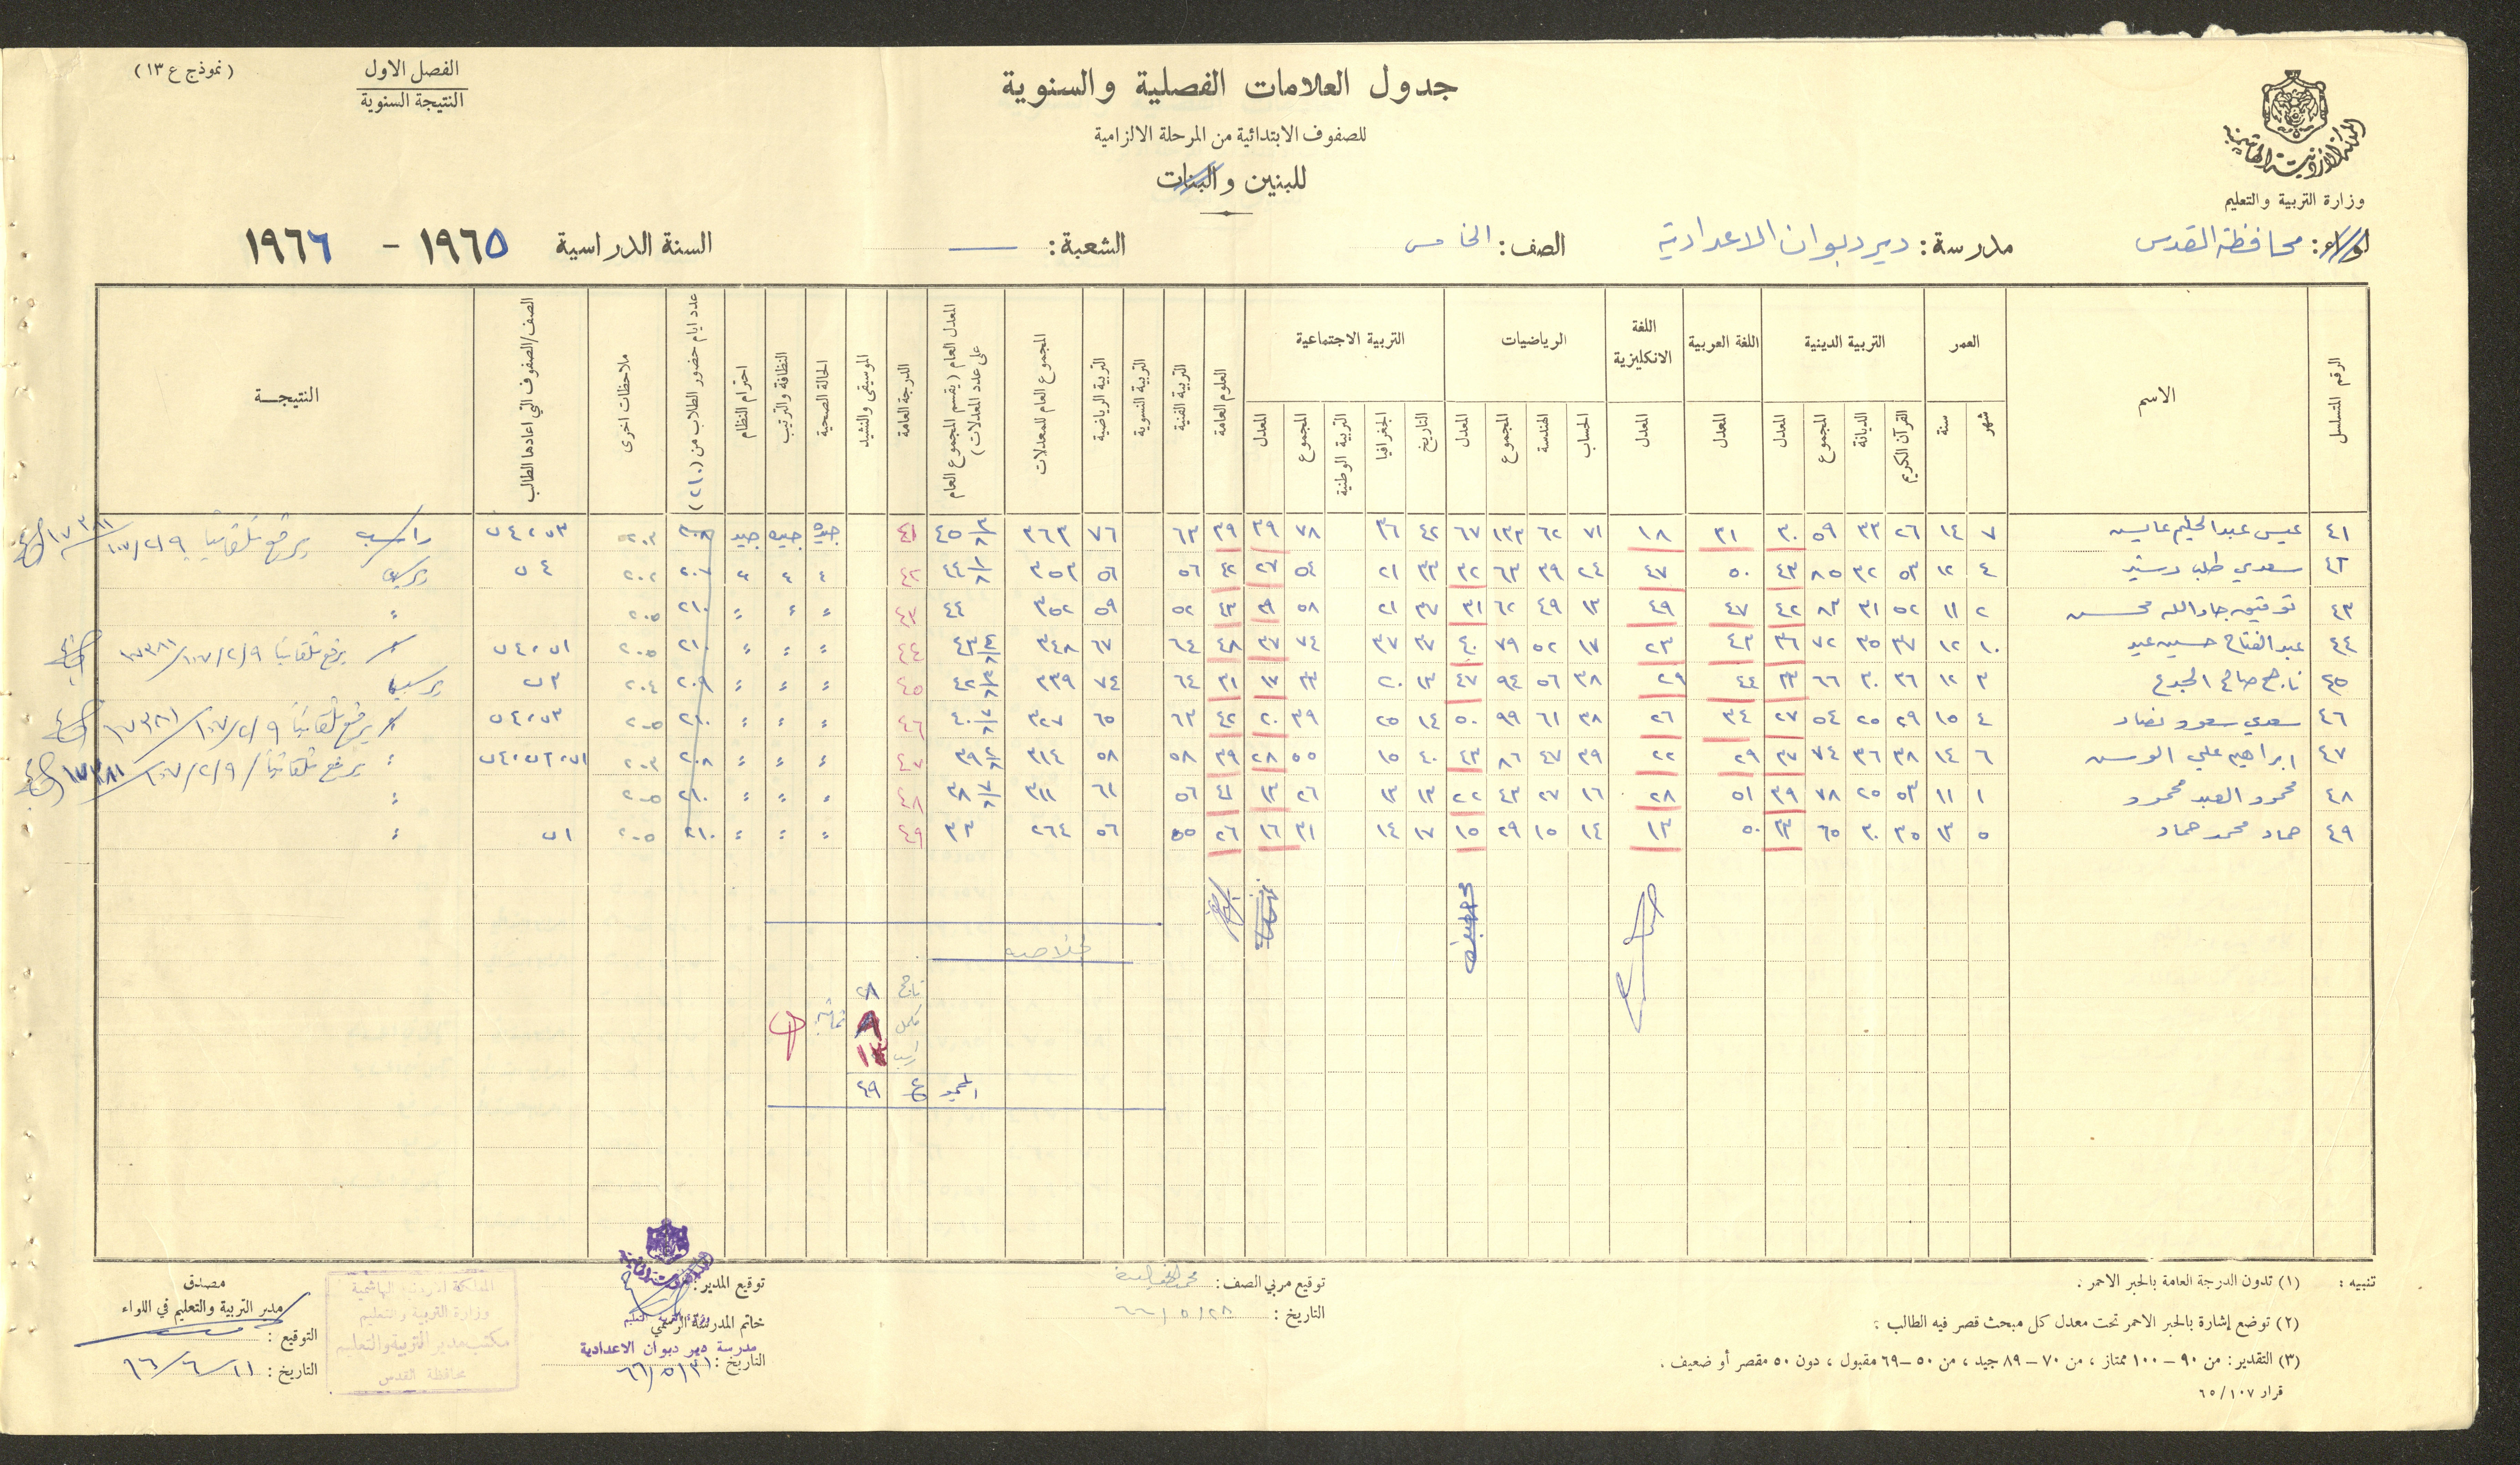 المملكة الاردنية الهاشمية
وزارة التربية والتعليم
جدول العلامات الفصلية والسنوية
للصفوف الابتدائية من المرحلة الالزامية
للبنين والبنات
الفصل الاول
النتيجة السنوية
(نموذج ع ١٣)
لواء: محافظة القدس مدرسة: دير دبوان الاعدادية الصف: الخامس الشعبة: — السنة الدراسية ١٩٦٥ - ١٩٦٦
الرقم المتسلسل الاسم العمر التربية الدينية اللغة العربية اللغة الانكليزية الرياضيات التربية الاجتماعية العلوم العامة التربية الفنية التربية النسوية التربية الرياضية المجموع العام للمعدلات المعدل العام (يقسم المجموع العام على عدد المعدلات) الدرجة العامة الموسيقى والنشيد الحالة الصحية النظافة والترتيب احترام النظام عدد ايام حضور الطلاب من (٢١٠) ملاحظات اخرى الصف/الصفوف التي اعادها الطالب النتيجة
شهر سنة القرآن الكريم الديانة المجموع المعدل المعدل المعدل الحساب الهندسة المجموع المعدل التاريخ الجغرافيا التربية الوطنية المجموع المعدل
٤١ عيسى عبد الحليم عايس ٧ ١٤ ٢٦ ٣٣ ٥٩ ٣٠ ٣١ ١٨ ٧١ ٦٢ ١٣٣ ٦٧ ٤٢ ٣٦ ٧٨ ٣٩ ٣٩ ٦٣ ٧٦ ٣٦٣ ٤٥ ٣/٨ ٤١ جيده جيده جيد ٢٠٨ ٢٠٣ راسب يرفع تلقائيا
٤٢ سعدي طلب رشيد ٤ ١٢ ٥٣ ٣٢ ٨٥ ٤٣ ٥٠ ٤٧ ٢٤ ٣٩ ٦٣ ٣٢ ٣٣ ٢١ ٥٤ ٢٧ ٥٦ ٥٦ ٣٥٣ ٤٤ ١/٨ ٤٢ " " " ٢٠٢ ٥٤
٤٣ توفيق جاد الله محسن ٢ ١١ ٥٢ ٣١ ٨٣ ٤٢ ٤٧ ٤٩ ١٣ ٤٩ ٦٢ ٣١ ٣٧ ٢١ ٥٨ ٢٩ ٤٣ ٥٢ ٥٩ ٣٥٢ ٤٤ ٤٣ " " " ٢١٠ ٢٠٥ "
٤٤ عبد الفتاح حسين عيد ١٠ ١٢ ٣٧ ٣٥ ٧٢ ٣٦ ٤٣ ٢٣ ١٧ ٥٢ ٧٩ ٤٠ ٣٧ ٣٧ ٧٤ ٣٧ ٤٨ ٦٤ ٦٧ ٣٤٨ ٤٣ ٤/٨ ٤٤ " " " ٢١٠ ٢٠٥ يرفع تلقائيا
٤٥ ناجح صالح الجدع ٣ ١٢ ٣٦ ٣٠ ٦٦ ٣٣ ٤٤ ٢٩ ٣٨ ٥٦ ٩٤ ٤٧ ١٣ ٢٠ ٣٣ ١٧ ٣١ ٦٤ ٧٤ ٣٣٩ ٤٢ ٣/٨ ٤٥ " " " ٢٠٩ ٢٠٤ ٥٣
٤٦ سعدي سعود نصار ٤ ١٥ ٢٩ ٢٥ ٥٤ ٢٧ ٣٤ ٢٦ ٣٨ ٦١ ٩٩ ٥٠ ١٤ ٢٥ ٣٩ ٢٠ ٤٢ ٦٣ ٦٥ ٣٢٧ ٤٠ ٧/٨ ٤٦ " " " ٢١٠ ٢٠٥ يرفع تلقائيا
٤٧ ابراهيم علي الوسن ٦ ١٤ ٣٨ ٣٦ ٧٤ ٣٧ ٢٩ ٢٢ ٣٩ ٤٧ ٨٦ ٤٣ ٤٠ ١٥ ٥٥ ٢٨ ٣٩ ٥٨ ٥٨ ٣١٤ ٣٩ ٢/٨ ٤٧ " " " ٢٠٨ ٢٠٣ " يرفع تلقائيا
٤٨ محمود العبد محمود ١ ١١ ٥٣ ٢٥ ٧٨ ٣٩ ٥١ ٢٨ ١٦ ٢٧ ٤٣ ٢٢ ١٣ ١٣ ٢٦ ١٣ ٤١ ٥٦ ٦١ ٣١١ ٣٨ ٧/٨ ٤٨ " " " ٢١٠ ٢٠٥ "
٤٩ حماد محمد حماد ٥ ١٣ ٣٥ ٣٠ ٦٥ ٣٣ ٥٠ ١٣ ١٤ ١٥ ٢٩ ١٥ ١٧ ١٤ ٣١ ١٦ ٢٦ ٥٥ ٥٦ ٢٦٤ ٣٣ ٤٩ " " " ٢١٠ ٢٠٥ ٥١ "
خلاصه
ناجح ٢٨
مكمل ثمانية
راسب
المجموع ٤٩
تنبيه: (١) تدون الدرجة العامة بالحبر الاحمر.
(٢) توضع إشارة بالحبر الاحمر تحت معدل كل مبحث قصر فيه الطالب:
(٣) التقدير: من ٩٠ – ١٠٠ ممتاز، من ٧٠ – ٨٩ جيد، من ٥٠ – ٦٩ مقبول، دون ٥٠ مقصر أو ضعيف.
قرار ٦٥/١٠٧
توقيع مربي الصف:
التاريخ: ٦٦/٥/٢٨
توقيع المدير:
خاتم المدرسة الرسمي
مدرسة دير دبوان الاعدادية
التاريخ: ٦٦/٥/٣١
المملكة الاردنية الهاشمية
وزارة التربية والتعليم
مكتب مدير التربية والتعليم
محافظة القدس
مصدق
مدير التربية والتعليم في اللواء
التوقيع:
التاريخ: ٦٦/٦/١١